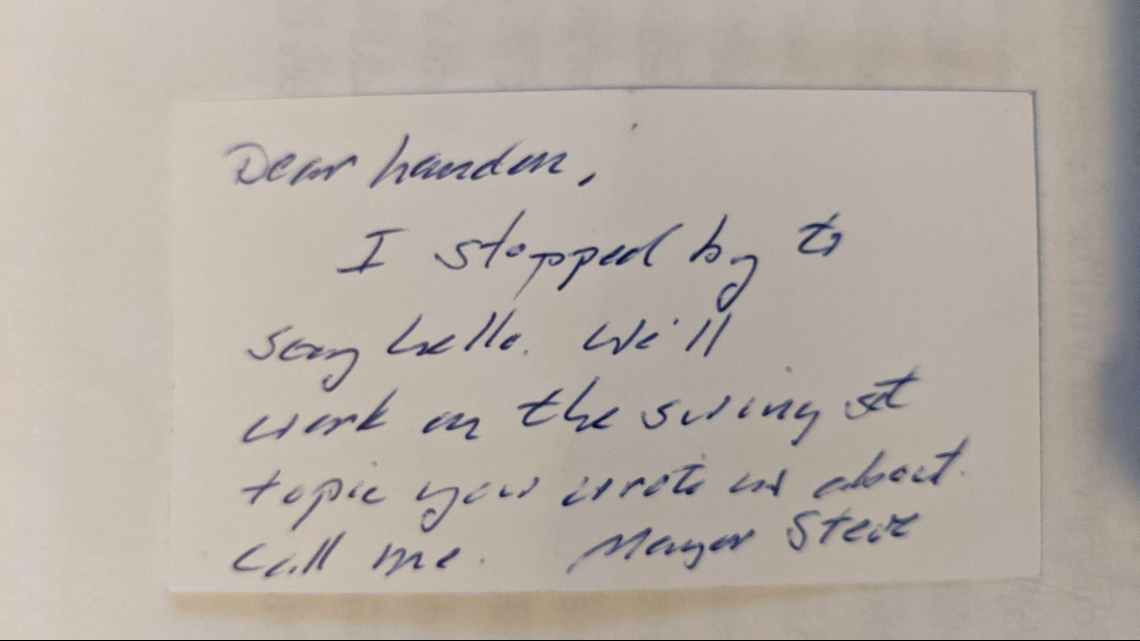 Dear
I stopped by to
say hello. We'll
work on the swing set
topic you wrote us about.
Call me. Mayor Steve